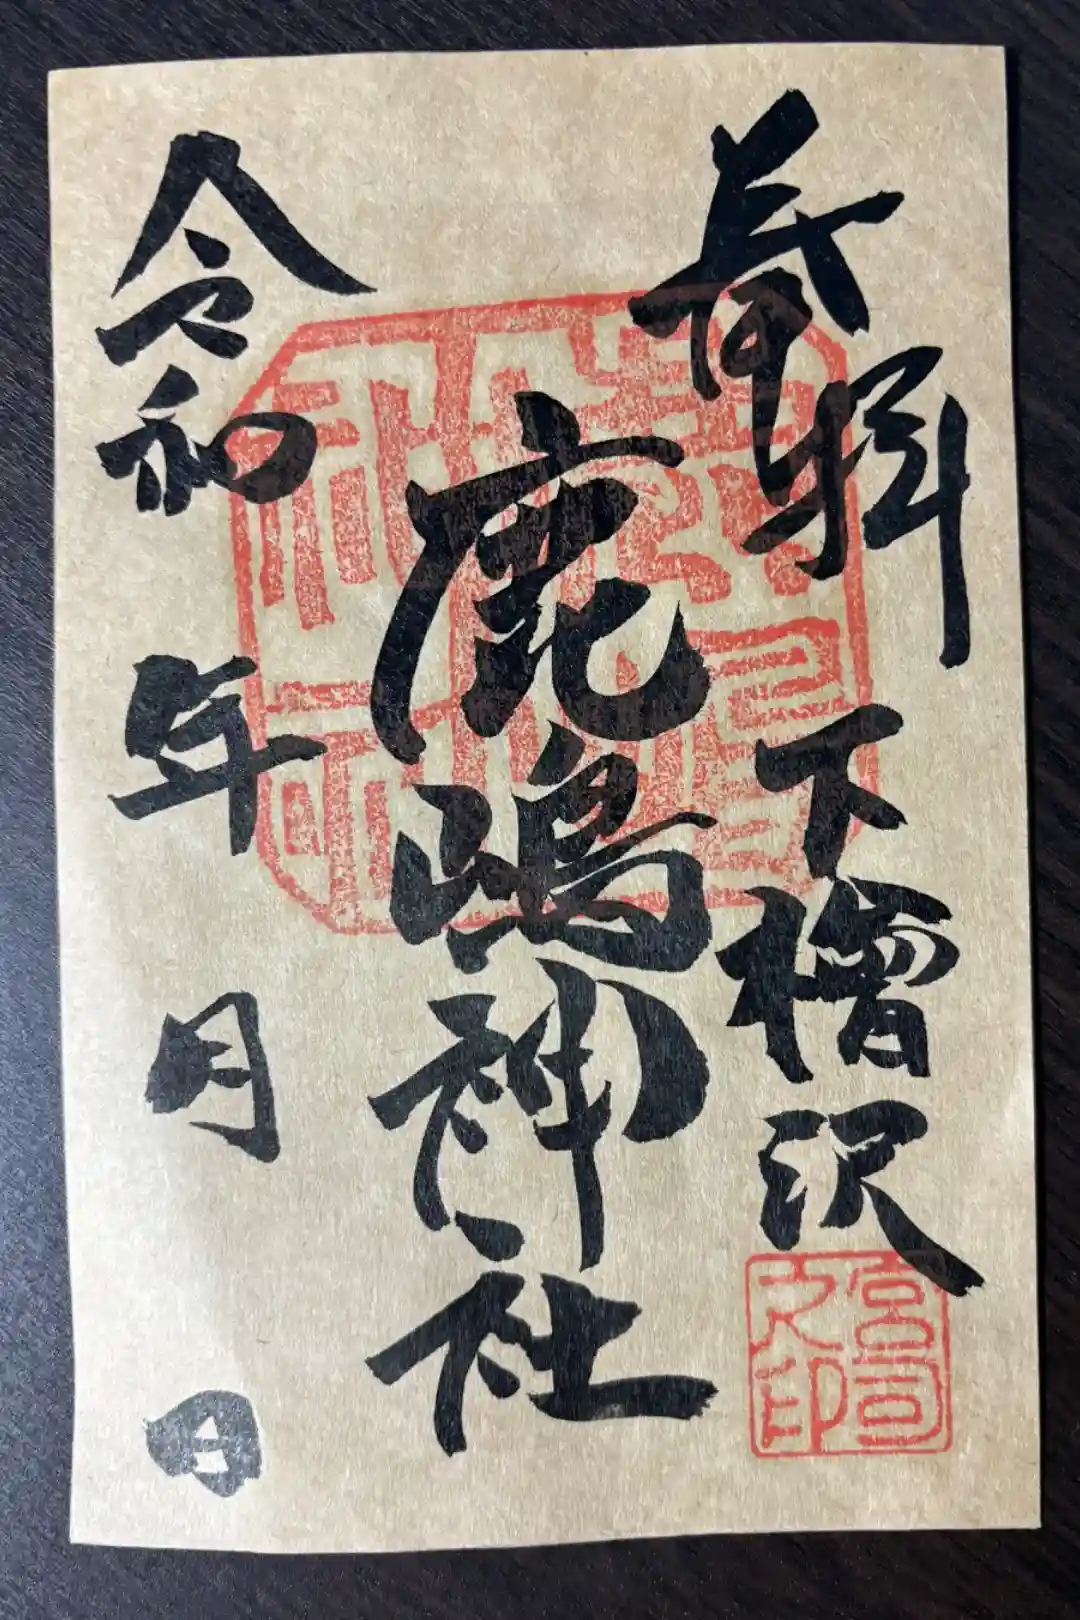 奉拝 下檜沢
鹿嶋神社
令和 年 月 日
宮司
之印